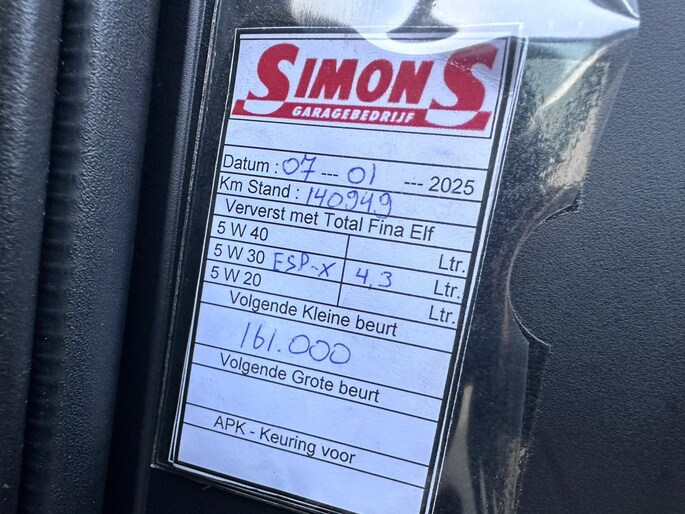 SIMONS
GARAGEBEDRIJF
Datum : 07 --- 01 --- 2025
Km Stand : 140949
Ververst met Total Fina Elf
5 W 40 Ltr.
5 W 30 ESP-X 4,3 Ltr.
5 W 20 Ltr.
Volgende Kleine beurt
161.000
Volgende Grote beurt
APK - Keuring voor